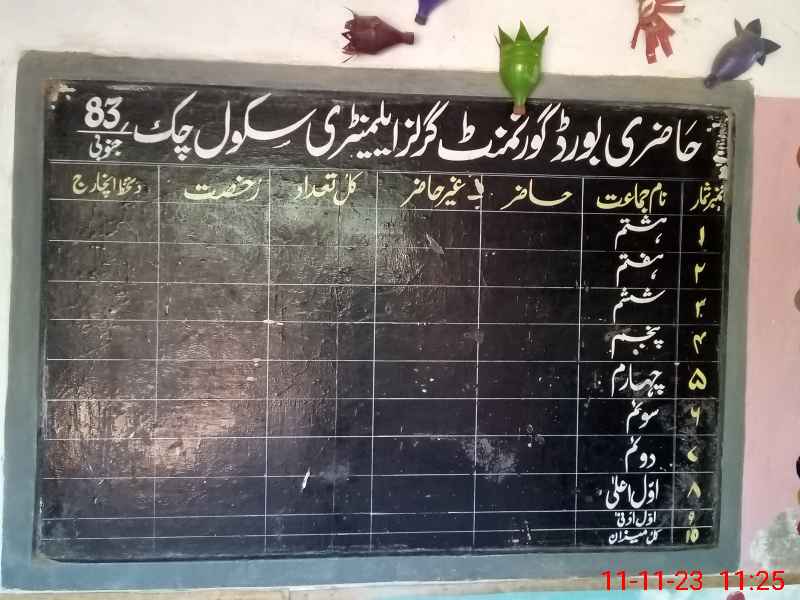 حاضری بورڈ گورنمنٹ گرلز ایلیمنٹری سکول چک 83 جنوبی
نمبر شمار نام جماعت حاضر غیر حاضر کل تعداد رخصت دستخط انچارج
۱ ہشتم
۲ ہفتم
۳ ششم
۴ پنجم
۵ چہارم
۶ سوئم
۷ دوئم
۸ اوّل اعلیٰ
۹ اوّل ادنیٰ
۱۰ کل میزان
11-11-23 11:25